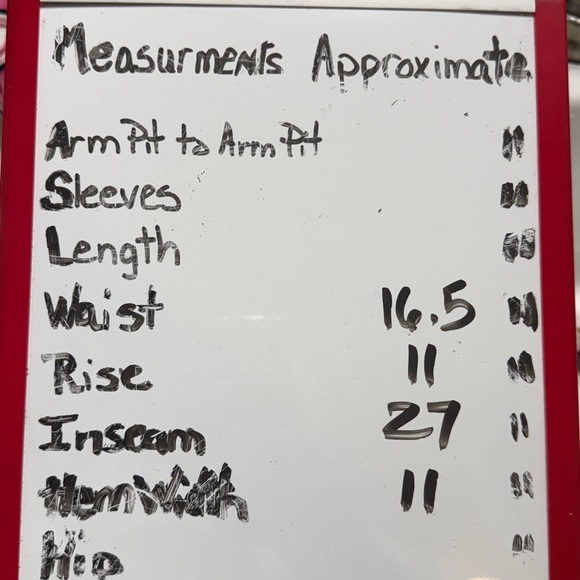 Measurments Approximate
Arm Pit to Arm Pit "
Sleeves "
Length "
Waist 16.5 "
Rise 11 "
Inseam 27 "
Hem Width 11 "
Hip "